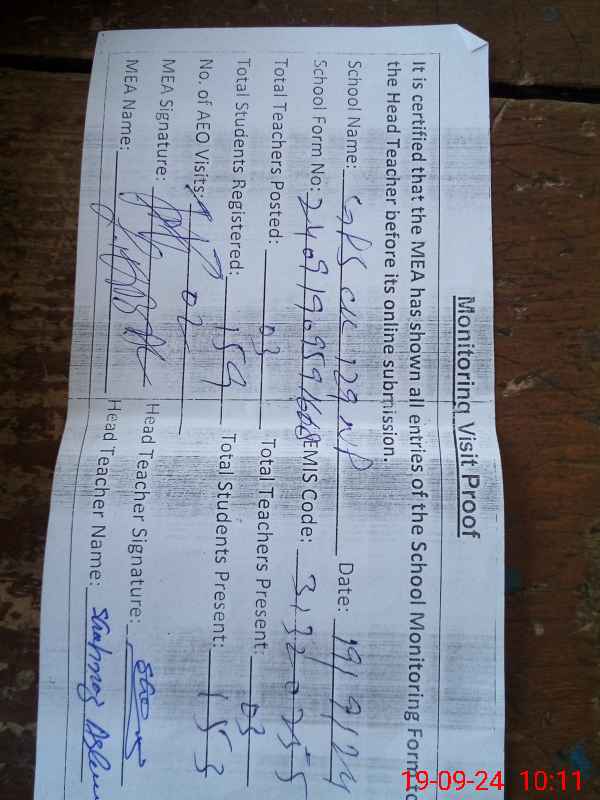 Monitoring Visit Proof
It is certified that the MEA has shown all entries of the School Monitoring Form to
the Head Teacher before its online submission.
School Name: GPS CH 129 NP Date: 19/9/24
School Form No: EMIS Code: 31320255
Total Teachers Posted: 03 Total Teachers Present: 03
Total Students Registered: 159 Total Students Present: 153
No. of AEO Visits: 02
MEA Signature: Head Teacher Signature:
MEA Name: Head Teacher Name: Shahnaz Aslam
19-09-24 10:11